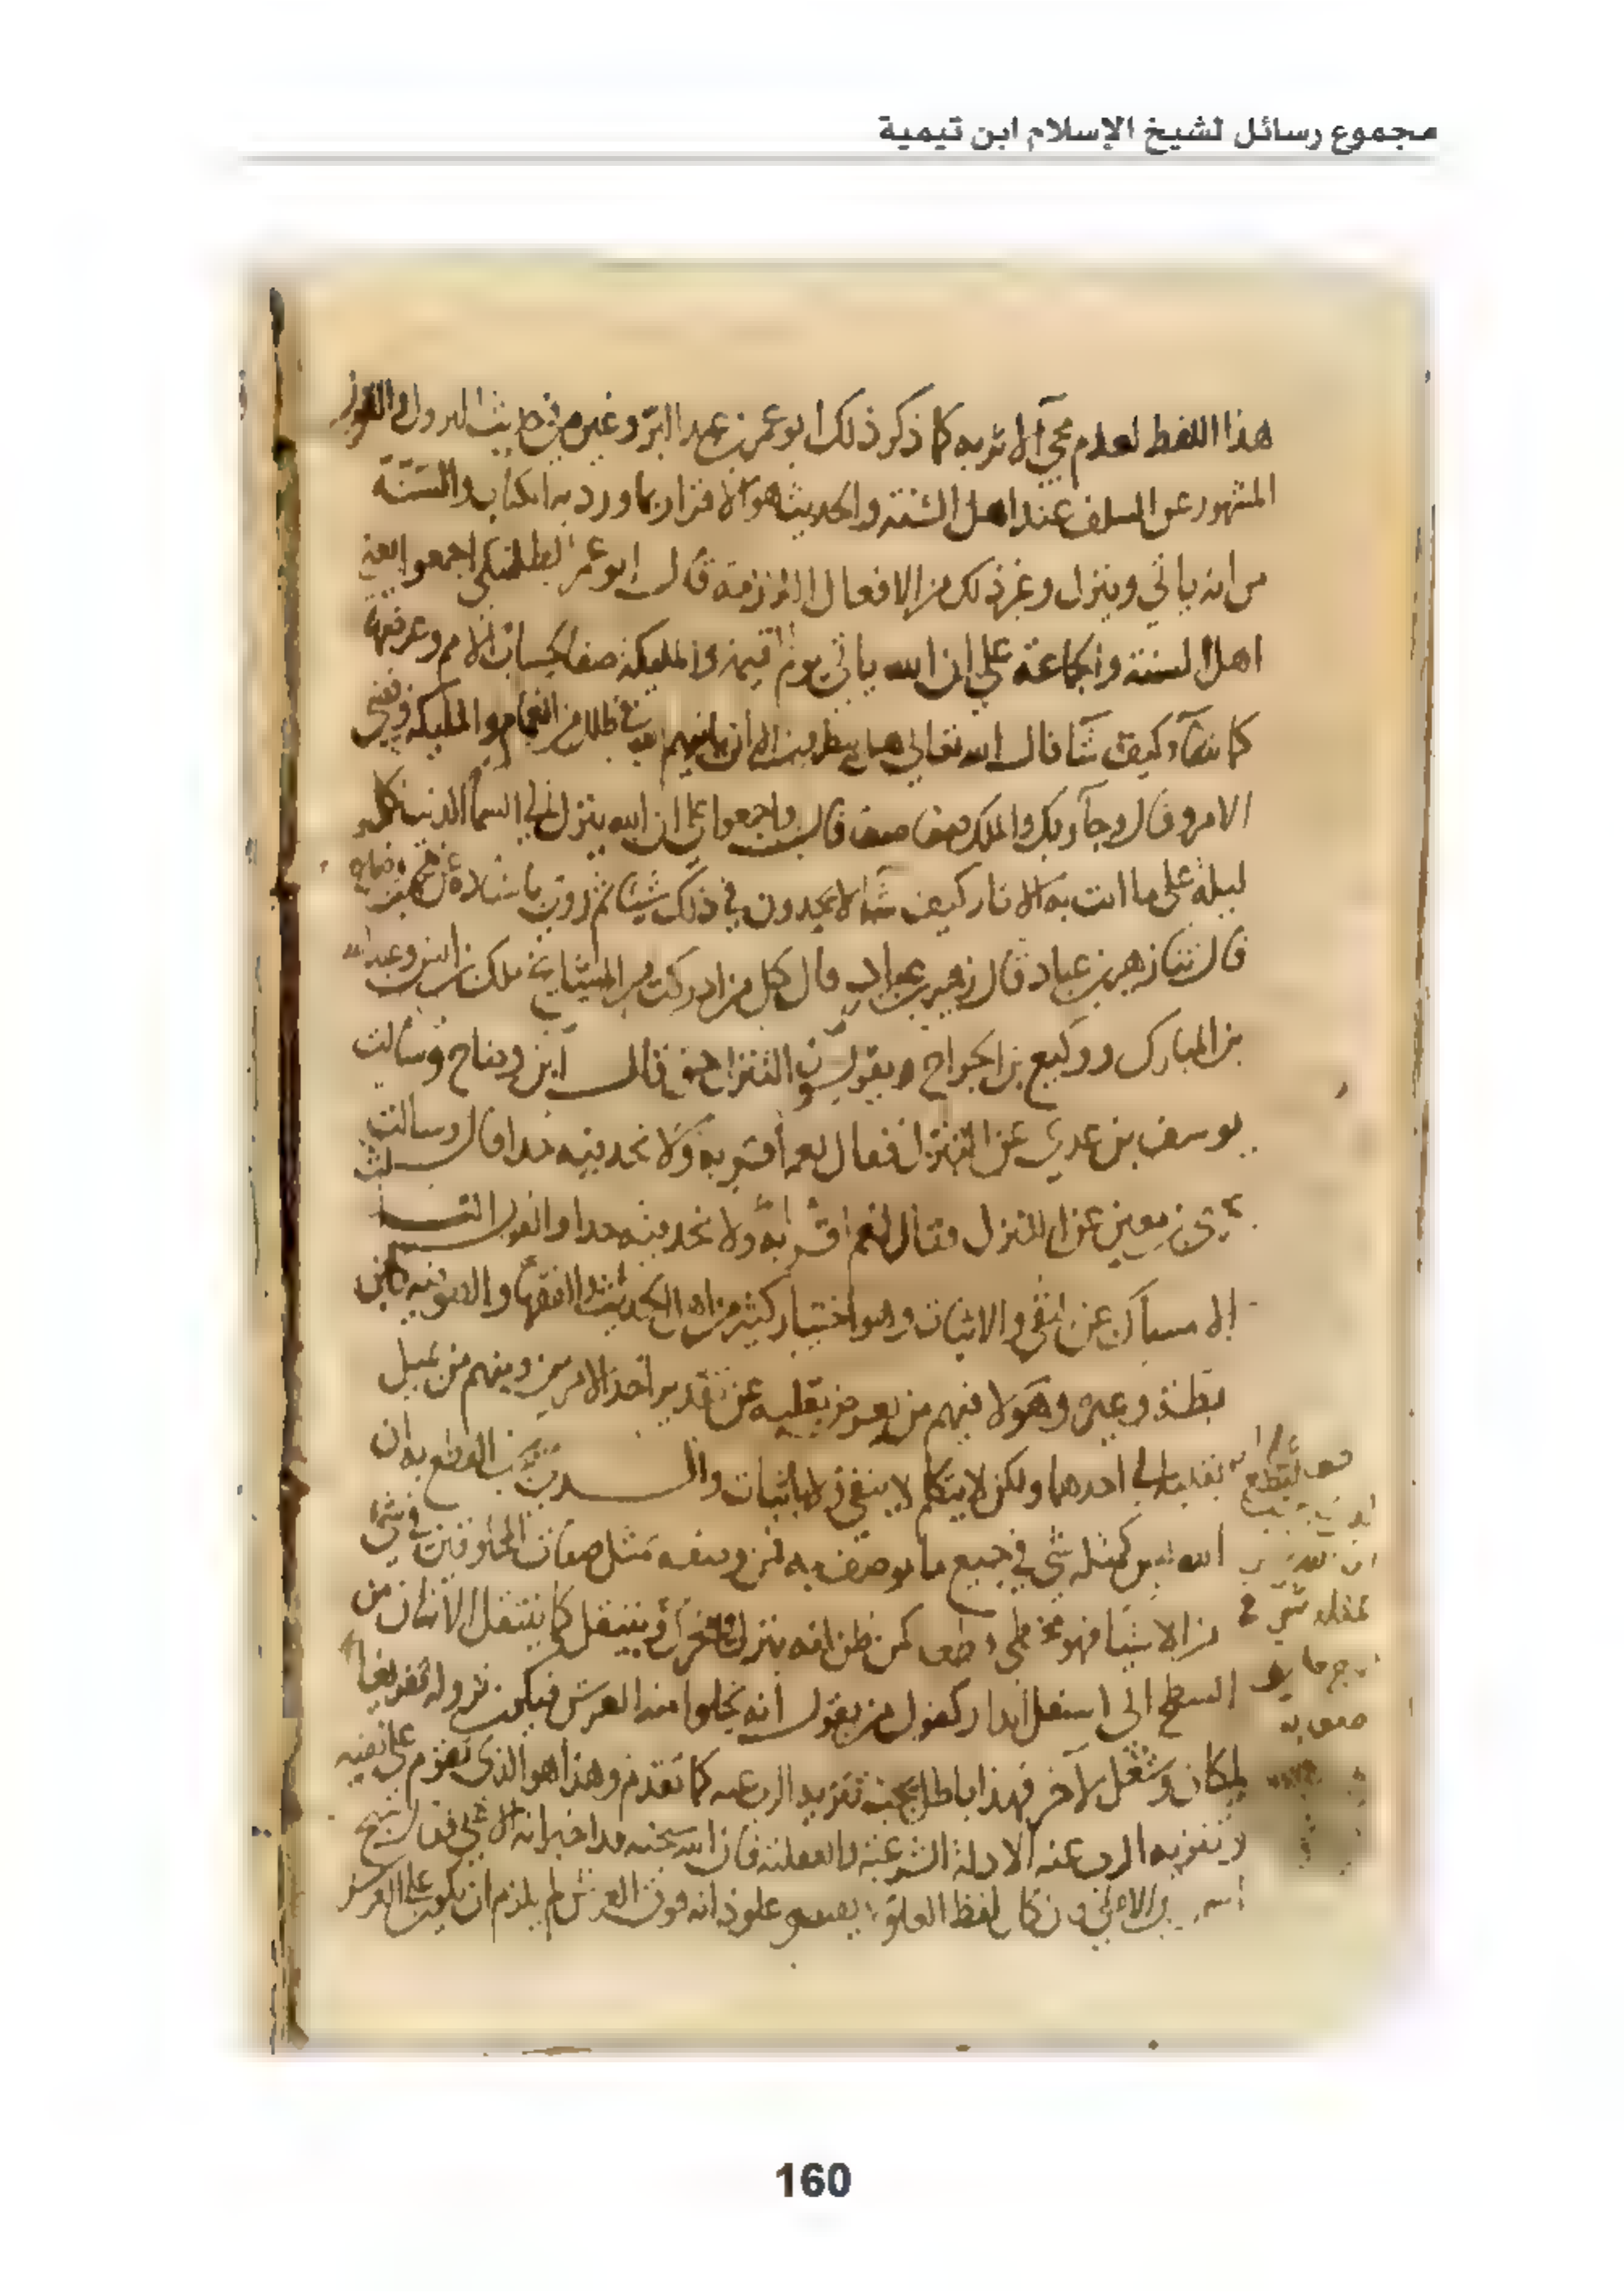 مجموع رسائل لشيخ الإسلام ابن تيمية
هذا اللفظ لعدم مجي الاثر به كما ذكر ذلك ابو عمر بن عبد البر وغيره في حديث النزول والقول
المشهور عن السلف عند اهل السنة والحديث هو الاقرار بما ورد به الكتاب والسنة
من انه ياتي وينزل وغير ذلك من الافعال اللازمة قال ابو عمر الطلمنكي اجمعوا يعني
اهل السنة والجماعة على ان الله ياتي يوم القيمة والمليكة صفا لحساب الامم وعرضها
كما يشآ وكيف شا قال الله تعالى هل ينظرون الا ان ياتيهم الله في ظلل من الغمام والمليكة وقضي
الامر وقال وجآ ربك والملك صفا صفا قال واجمعوا على ان الله ينزل الى السمآ الدنيا كل
ليلة على ما اتت به الاثار كيف شآ لا يحدون في ذلك شيئا ثم روى باسناده عن محمد بن وضاح
قال ثنا زهير بن عباد قال كل من ادركت من المشايخ ملك بن انس وعبد الله
بن المبارك ووكيع بن الجراح ويقولون النزول حق قال ابن وضاح وسالت
يوسف بن عدي عن النزول فقال نعم أقر به ولا نحد فيه حدا قال وسالت
يحيى بن معين عن النزول فقال نعم اقر به ولا نحد فيه حدا والقول الثالث
الامساك عن النفي والاثبات وهو اختيار كثير من اهل الحديث والفقهآ والصوفيه كابن
بطة وغيره وهولا فيهم من يعرض بقلبه عن تقدير احد الامرين ومنهم من يميل
بقلبه الى احدهما ولكن لا يتكلم لا بنفي ولا باثبات والـذي يجب القطع به ان
الله ليس كمثله شي في جميع ما يوصف به فمن وصفه بمثل صفات المخلوقين في شي
من الاشيا فهو مخطي قطعا كمن ظن انه ينزل فيتحرك وينتقل كما ينتقل الانسان من
السطح الى اسفل الدار كقول من يقول انه يخلوا منه العرش فيكون نزوله تفريغا
لمكان وشغل لآخر فهذا باطل يجب تنزيه الرب عنه كما تقدم وهذا هو الذي تقوم على نفيه
وتنزيه الرب عنه الادلة الشرعية والعقلية فان الله سبحنه قد اخبر انه الاعلى فقال سبح
اسم ربك الاعلى وان كان لفظ العلو يقتضي علو ذاته فوق العرش لم يلزم ان يكون على العرش
160